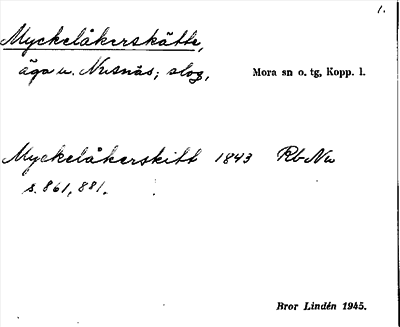 1.
Myckelåkerskätte,
äga u. Nusnäs; slog, Mora sn o. tg, Kopp. l.
Myckelåkerskitt 1843 Rb Nu
s. 861, 881.
Bror Lindén 1945.